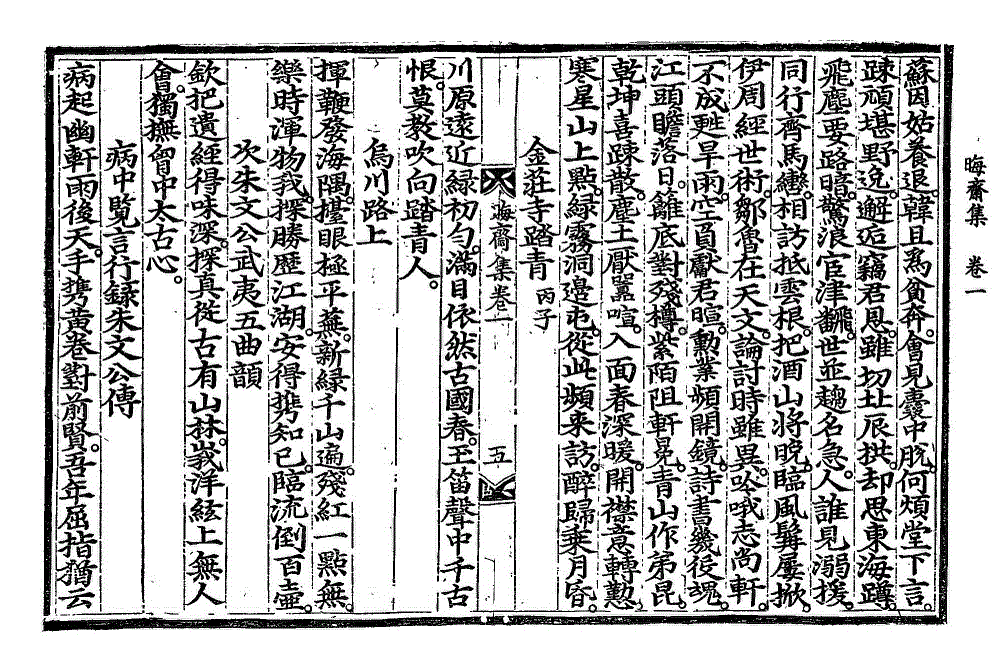 晦齋集 卷一
蘇因姑養退韓且爲貧奔會見囊中脫何煩堂下言
踈頑堪野逸邂逅竊君恩雖切北辰拱却思東海蹲
飛塵要路暗驚浪宦津飜世並趨名急人誰見溺援
同行齊馬轡相訪抵雲根把酒山將晩臨風鬢屢掀
伊周經世術鄒魯在天文論討時雖異吟哦志尙軒
不成甦旱雨空負獻君暄勳業頻開鏡詩書幾役魂
江頭瞻落日籬底對殘樽紫陌阻軒冕靑山作弟昆
乾坤喜踈散塵土厭囂喧入面春深暖開襟意轉懃
寒星山上點綠霧洞邊屯從此頻來訪醉歸乘月昏
金莊寺踏靑 丙子
晦齋集卷一 五
川原遠近綠初勻滿目依然古國春玉笛聲中千古
恨莫敎吹向踏靑人
烏川路上
揮鞭發海隅擡眼極平蕪新綠千山遍殘紅一點無
樂時渾物我探勝歷江湖安得携知己臨流倒百壺
次朱文公武夷五曲韻
欽把遺經得味深探眞從古有山林峩洋絃上無人
會獨撫胷中太古心
病中覽言行錄朱文公傳
病起幽軒雨後天手携黃卷對前賢吾年屈指猶云